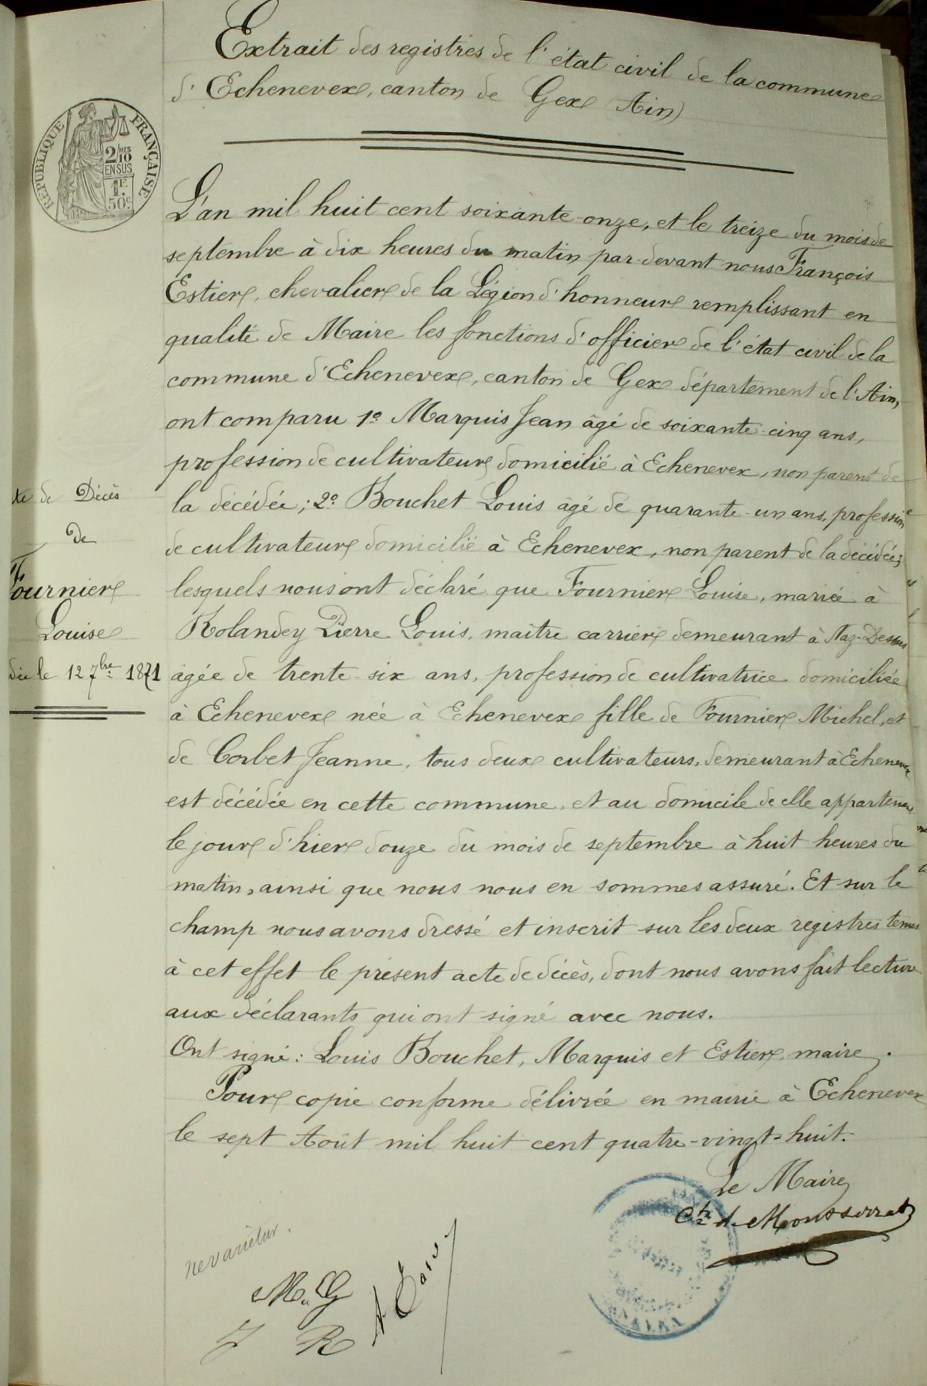 Extrait des registres de l'état civil de la commune
d'Echenevex, canton de Gex (Ain)
RÉPUBLIQUE FRANÇAISE
2/10
EN SUS
1F
50c
L'an mil huit cent soixante-onze, et le treize du mois de
septembre à dix heures du matin par-devant nous François
Estier, chevalier de la Légion d'honneur remplissant en
qualité de Maire les fonctions d'officier de l'état civil de la
commune d'Echenevex, canton de Gex département de l'Ain,
ont comparu 1º Marquis Jean âgé de soixante-cinq ans,
profession de cultivateur, domicilié à Echenevex, non parent de
la décédée; 2º Bouchet Louis âgé de quarante-un ans, profession
de cultivateur domicilié à Echenevex, non parent de la décédée;
lesquels nous ont déclaré que Fournier Louise, mariée à
Rolandey Pierre Louis, maître carrier demeurant à Naz-Dessus
âgée de trente-six ans, profession de cultivatrice domiciliée
à Echenevex née à Echenevex fille de Fournier Michel, et
de Corbet Jeanne, tous deux cultivateurs, demeurant à Echenevex
est décédée en cette commune, et au domicile de elle appartenant
le jour d'hier douze du mois de septembre à huit heures du
matin, ainsi que nous nous en sommes assuré. Et sur le
champ nous avons dressé et inscrit sur les deux registres tenus
à cet effet le présent acte de décès, dont nous avons fait lecture
aux déclarants qui ont signé avec nous.
Ont signé: Louis Bouchet, Marquis et Estier, maire.
Pour copie conforme délivrée en mairie à Echenevex
le sept Août mil huit cent quatre-vingt-huit.
Le Maire
de Décès
De
Fournier
Louise
le 12 7bre 1871
ne varietur.
M. G
J R